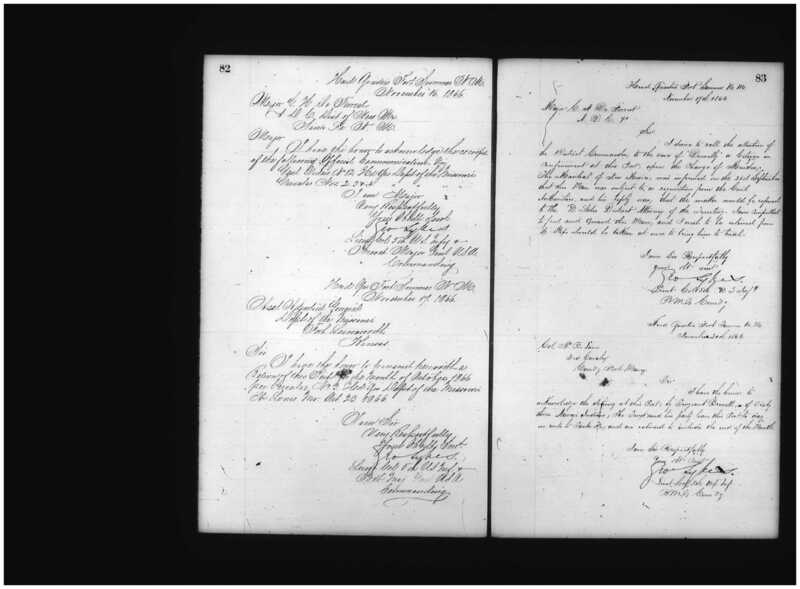 82
Head Quarters Fort Sumner N.M.
November 16, 1866
Major C. H. De Forrest
A.D.C. Dist of New Mex
Santa Fe N. M.
Major
I have the honor to acknowledge the receipt
of the following Official Communication
Genl Orders No 12 Hd Qrs Dept of the Missouri
Circular No 2
I am Major
Very Respectfully
Your Obdt Servt
Geo Sykes
Lieut Col 5th U.S. Infy &
Brevet Major Genl U.S.A.
Commanding
Head Qrs Fort Sumner N. M.
November 17, 1866
Asst Adjutant General
Dept of the Missouri
Fort Leavenworth
Kansas
Sir
I have the honor to transmit herewith a
Return of this Post for the month of October 1866
per Circular No 2 Hd Qrs Dept of the Missouri
St Louis Mo. Oct 20 1866
I am Sir
Very Respectfully
Your Obdt Servt
Geo Sykes
Lieut Col 5th U.S. Infy &
Bvt Maj Genl U.S.A
Commanding
83
Head Quarters Fort Sumner N. M.
November 17th 1866
Major C. H. De Forrest
A. D. C.
Sir
I desire to call the attention of
the District Commander to the case of a Citizen in
confinement at this Post, upon the charge of Murder.
The Marshal of New Mexico was informed on the 21st September
that this Man was subject to a requisition from the Civil
Authorities, and his reply was, that the matter would be referred
to the District Attorney of the I am compelled
to feed and Guard this Man, and I wish to be relieved from
it. Steps should be taken at once to bring him to trial.
I am Sir Respectfully
your Obt
Geo Sykes
Lieut Col 5th U.S. Infy &
B.M.G. Comdg
Head Quarters Fort Sumner N. M.
November 20th 1866
Col.
Comdg Fort
Sir
I have the honor to
acknowledge the at this Post, by Sergeant of Sixty
three Navajo Indians, The Sergeant and his party leave this Post to day
en route to and are rationed to include the end of the Month
I am Sir Respectfully
Your Obt
Geo Sykes
Lieut Col 5th U.S. Inf
B.M.G. Comdg